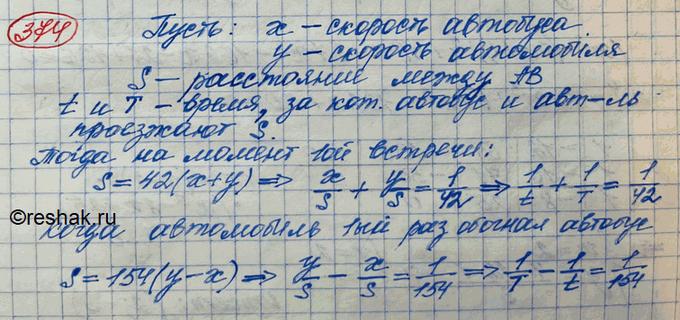 374 Пусть: x – скорость автобуса
y – скорость автомобиля
S – расстояние между АВ
t и T – время, за кот. автобус и авт-ль
проезжают S.
Тогда на момент 1ой встречи:
S = 42(x+y) ⇒ x/S + y/S = 1/42 ⇒ 1/t + 1/T = 1/42
©reshak.ru
Когда автомобиль 1ый раз обогнал автобус
S = 154(y-x) ⇒ y/S - x/S = 1/154 ⇒ 1/T - 1/t = 1/154